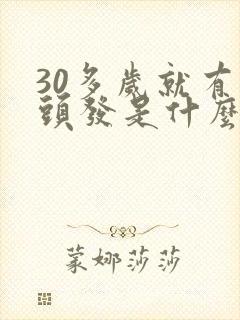 30多歲就有
頭發是什麽
蒙娜莎莎